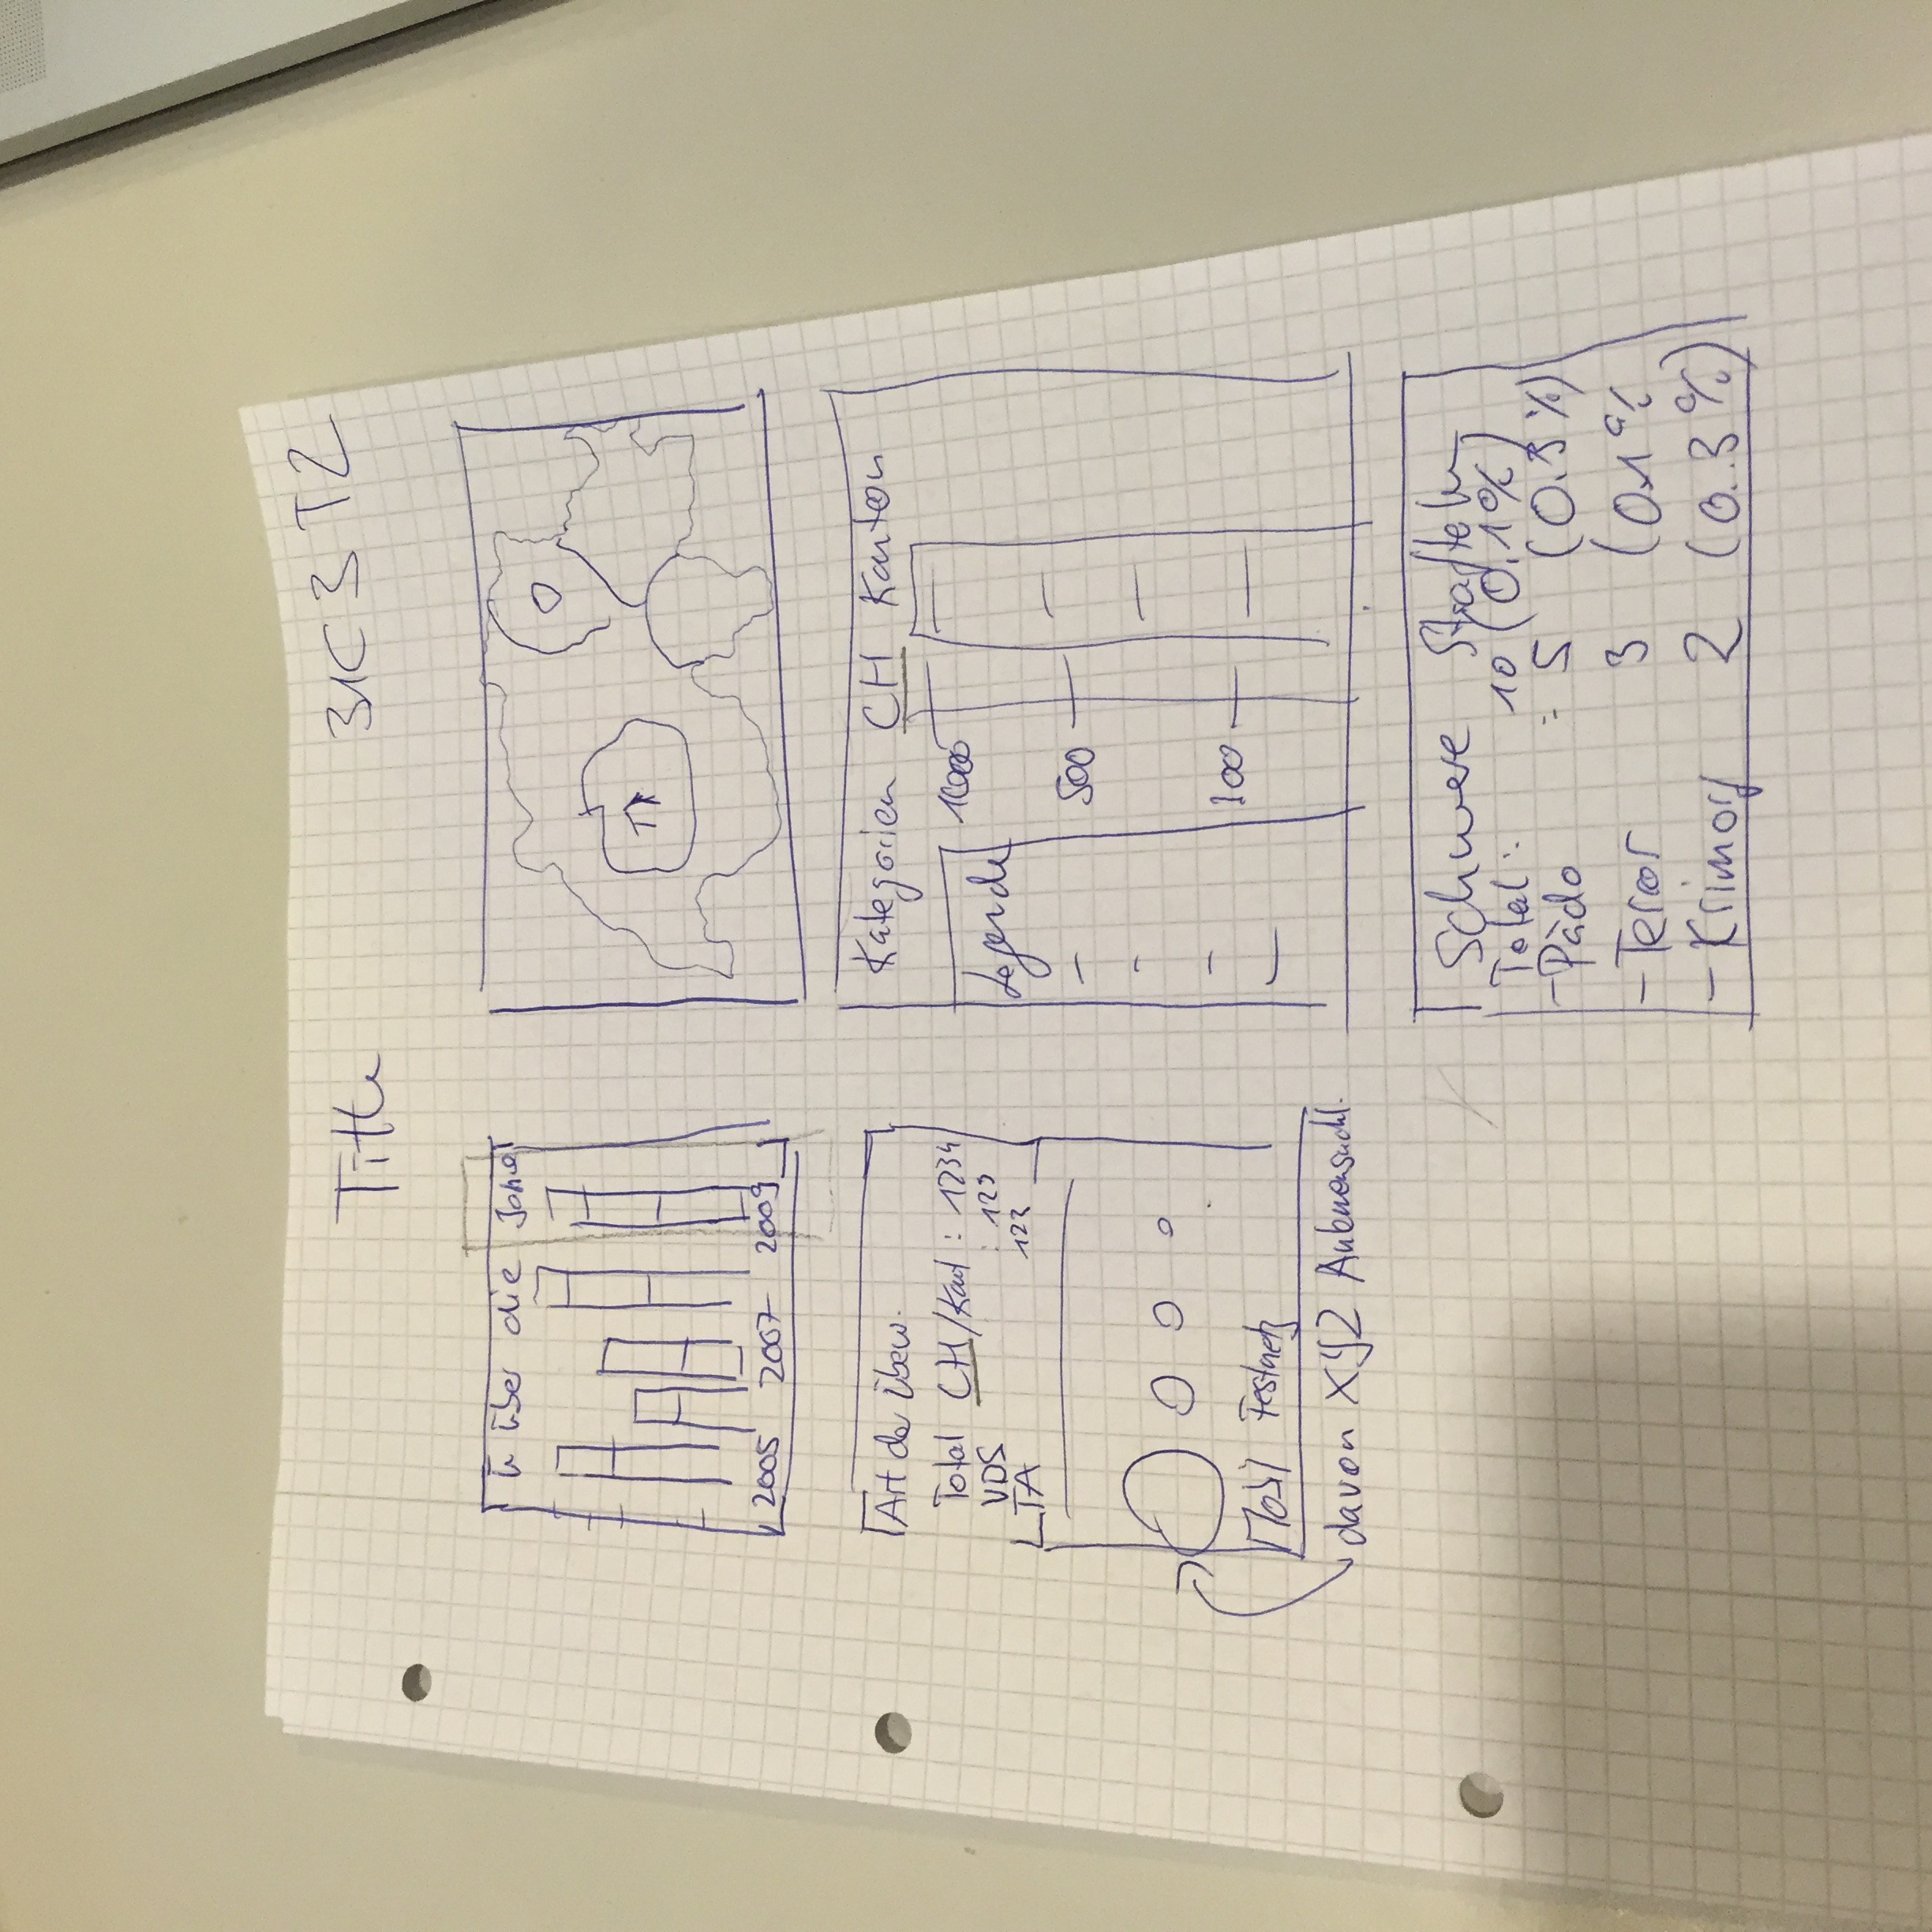 Title
31C3 TZ
Ü über die Jahre
2005 2007 2009
Art der Überw.
Total CH/Kant : 1234
VDS : 123
TA 122
Mobil Festnetz
davon XYZ
Kategorien CH Kanton
Legende
1000
500
100
Schwere Straftaten
Total: 10 (0.1%)
- Pädo = 5 (0.3%)
- Terror 3 (0.1%
- Krimorg 2 (0..3%)